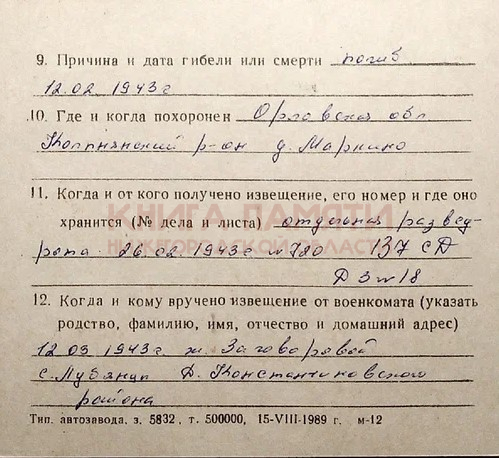 9. Причина и дата гибели или смерти погиб
12.02 1943 г
10. Где и когда похоронен Орловская обл
Колпнянский р-он д. Маркино
11. Когда и от кого получено извещение, его номер и где оно
хранится (№ дела и листа) отдельная развед-
рота 26.02.1943 г №720 137 сД
Д 3 л 18
КНИГА ПАМЯТИ
НИЖЕГОРОДСКОЙ ОБЛАСТИ
12. Когда и кому вручено извещение от военкомата (указать
родство, фамилию, имя, отчество и домашний адрес)
12 03 1943 г. ж. Заговоровой
с. Лубянцы Д. Константиновского
района
Тип. автозавода. з. 5832, т. 500000, 15-VIII-1989 г. м-12